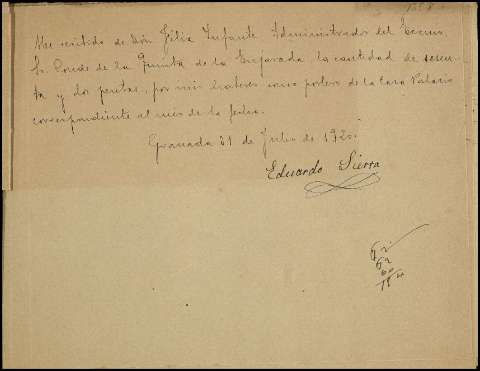 He recibido de Don Félix Infante Administrador del Excmo.
Sr. Conde de la Quinta de la Enjarada la cantidad de sesen-
ta y dos pesetas, por mis haberes como portero de la Casa Palacio
correspondiente al mes de la fecha.
Granada 31 de Julio de 192
Eduardo Sierra
62
62
60
184